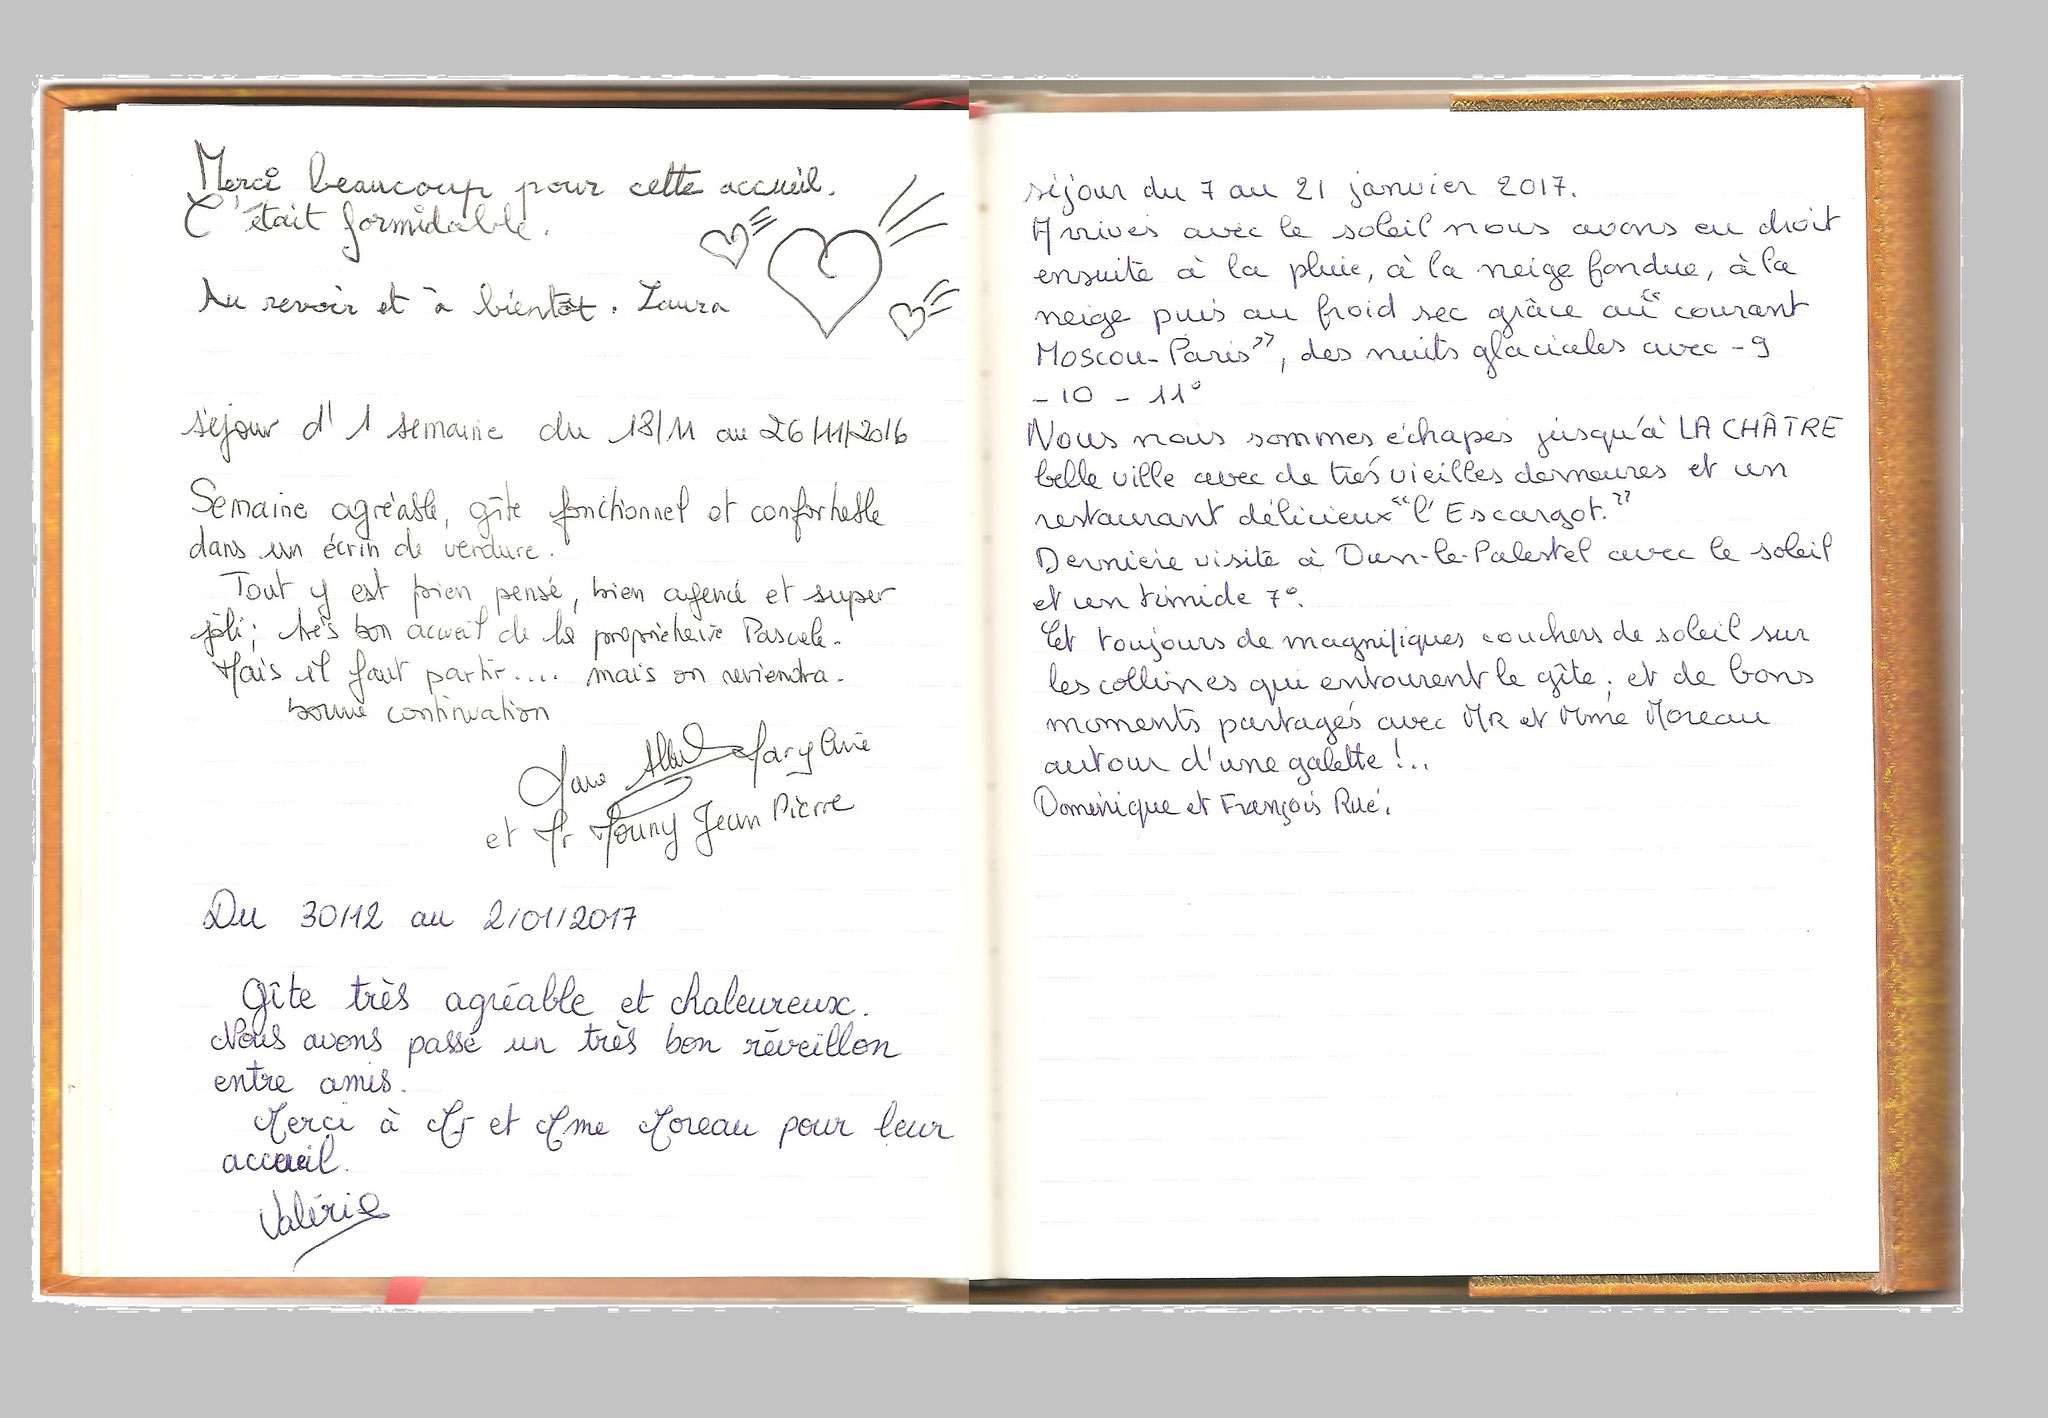 Merci beaucoup pour cette accueil.
C'était formidable.
Au revoir et à bientôt. Laura
séjour d' 1 semaine du 18/11 au 26/11/2016
Semaine agréable, gîte fonctionnel et confortable
dans un écrin de verdure.
Tout y est bien pensé, bien agencé et super
joli; très bon accueil de la propriétaire Pascale.
Mais il faut partir.... mais on reviendra.
bonne continuation
Mary
et Mr Mouny Jean Pierre
Du 30/12 au 2/01/2017
Gîte très agréable et chaleureux.
Nous avons passé un très bon réveillon
entre amis.
Merci à Mr et Mme Moreau pour leur
accueil.
Valérie
séjour du 7 au 21 janvier 2017.
Arrivés avec le soleil nous avons eu droit
ensuite à la pluie, à la neige fondue, à la
neige puis au froid sec grâce au "courant
Moscou-Paris", des nuits glaciales avec -9
-10 - 11°
Nous nous sommes échapés jusqu'à LA CHÂTRE
belle ville avec de très vieilles demeures et un
restaurant délicieux "l'Escargot."
Dernière visite à Dun-le-Palestel avec le soleil
et un timide 7°.
Et toujours de magnifiques couchers de soleil sur
les collines qui entourent le gîte; et de bons
moments partagés avec MR et Mme Moreau
autour d'une galette !..
Dominique et François Rué.